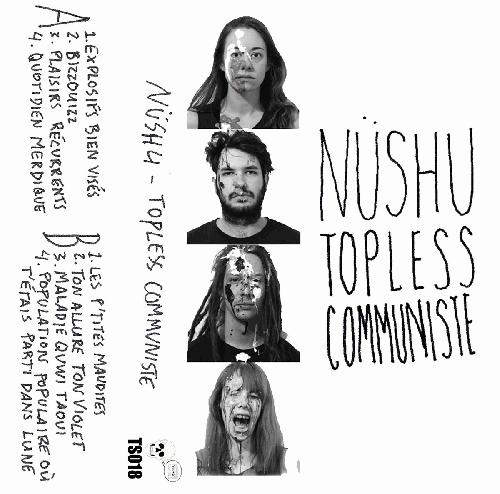 A
1. EXPLOSIFS BIEN VISÉS
2. BIZZOUIZZ
3. PLAISIRS RÉCURRENTS
4. QUOTIDIEN MERDIQUE
B
1. LES P'TITES MAUDITES
2. TON ALLURE TON VIOLET
3. MALADIE QUWI TAOUI
4. POPULATION POPULAIRE OÙ
T'ÉTAIS PARTI DANS LUNE
NÜSHU - TOPLESS COMMUNISTE
TS018
NÜSHU
TOPLESS
COMMUNISTE